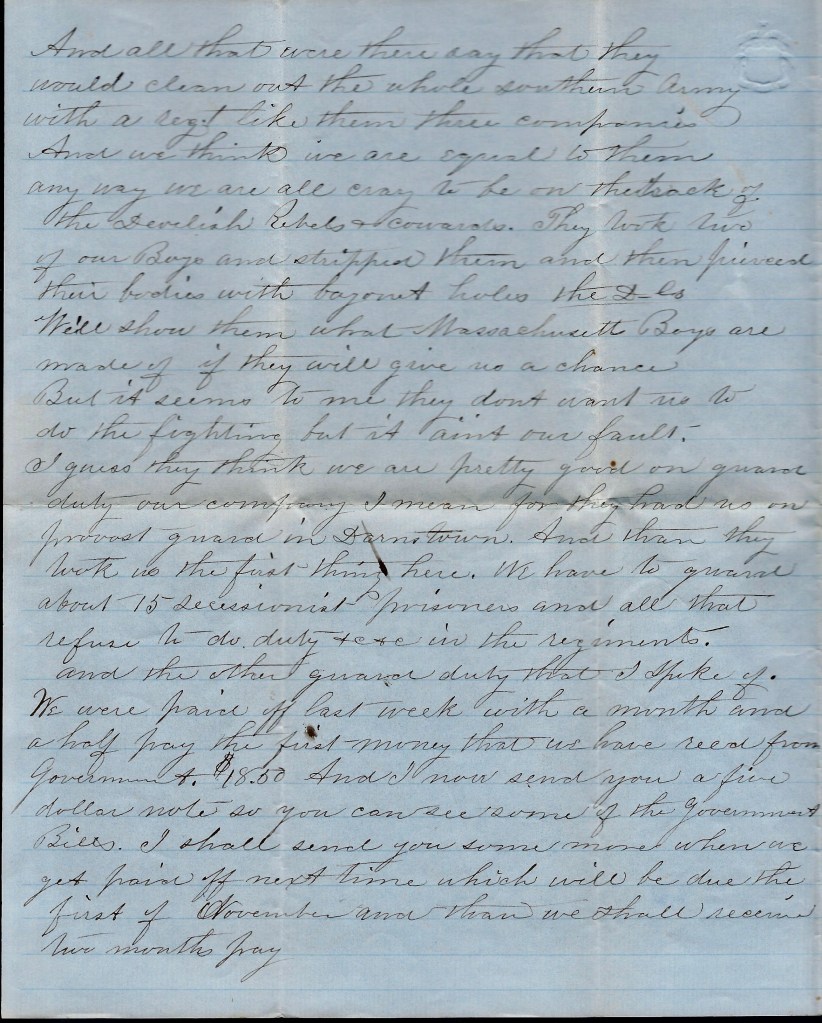 And all that were there say that they
would clean out the whole southern Army
with a regt like them three companies
And we think we are equal to them
any way we are all cray to be on the track of
the Develish Rebels & cowards. They took two
of our Boys and stripped them and then pierced
their bodies with bayonet holes the D-ls
We'll show them what Massachusetts Boys are
made of if they will give us a chance
But it seems to me they dont want us to
do the fighting but it aint our fault.
I guess they think we are pretty good on guard
duty our company I mean for they had us on
provost guard in Darnstown. And than they
took us the first thing here. We have to guard
about 15 secessionist prisoners and all that
refuse to do duty &c&c in the regiments.
and the other guard duty that I spoke of.
We were paid off last week with a month and
a half pay the first money that we have recd from
Government. $18.50 And I now send you a five
dollar note so you can see some of the Government
Bills. I shall send you some more when we
get paid off next time which will be due the
first of November and than we shall receive
two months pay